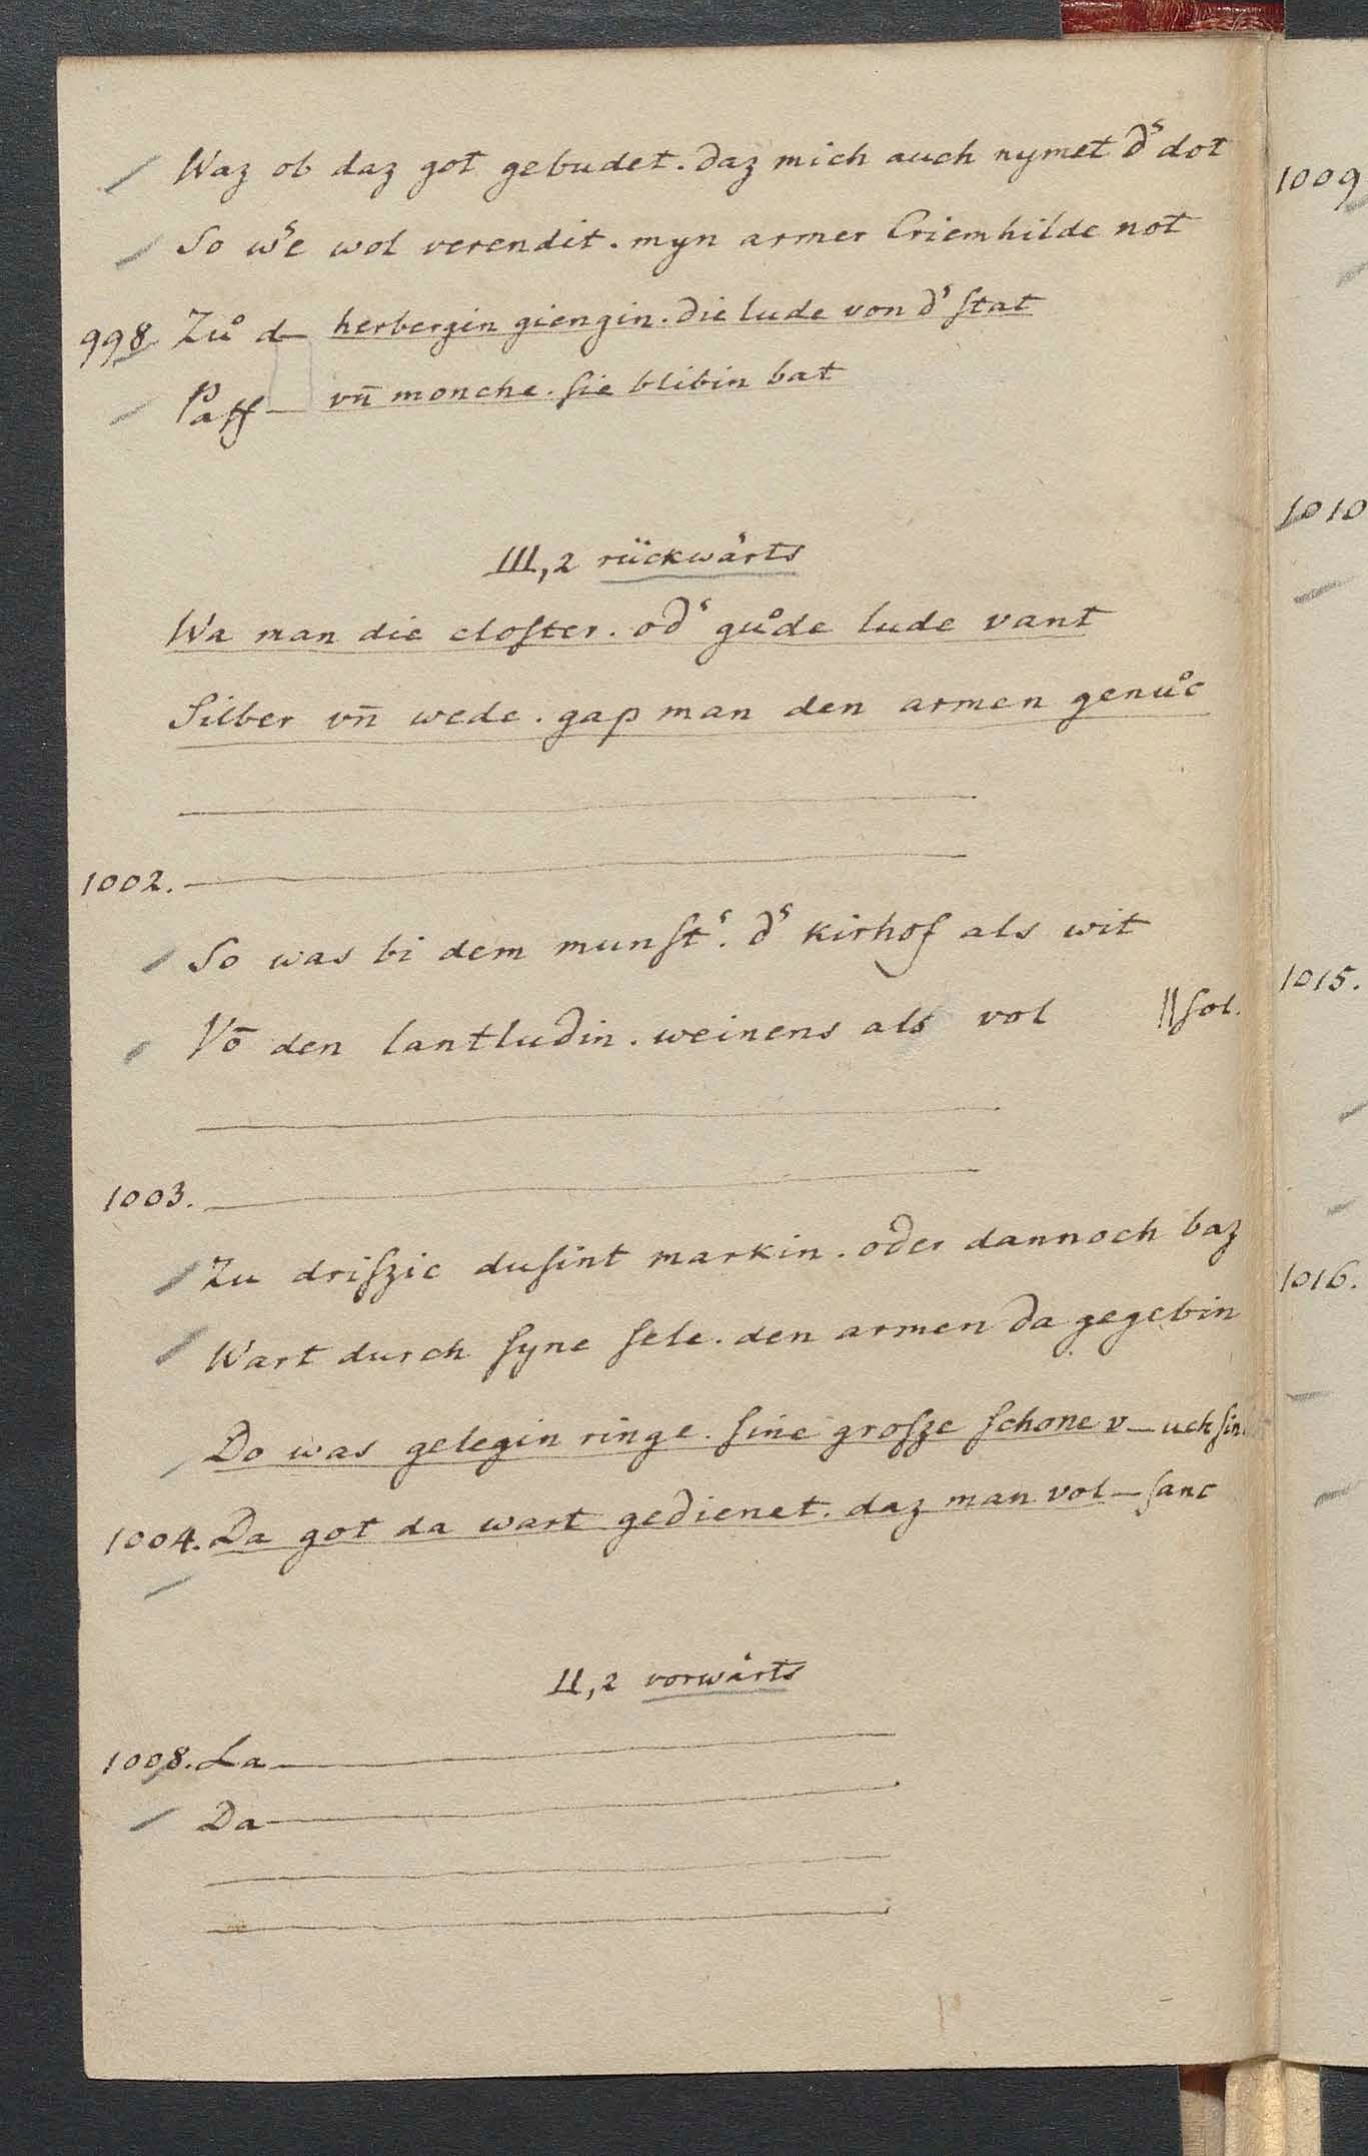 Waz ob daz got gebudet. daz mich auch nymet d' dot
So w'e wol verendit. myn armer Criemhilde not
998 Zuͦ d— herbergin giengin. die lude von d' ſtat
Paff— vn̄ monche. ſie blibin bat
III, 2 rückwärts
Wa man die cloſter. od' guͦde lude vant
Silber vn̄ wede. gap man den armen genuͦc
1002.
So was bi dem munſt'. d' kirhof als wit
Vō den lantludin. weinens als vol || ſol.
1003.
Zu driſzic duſint markin. oder dannoch baz
Wart durch ſyne ſele. den armen da gegebin
Do was gelegin ringe. ſine groſze ſchone v—uch ſin
1004. Da got da wart gedienet. daz man vol—ſanc
II, 2 vorwärts
1008. La—
Da—
1009
1010
1015.
1016.